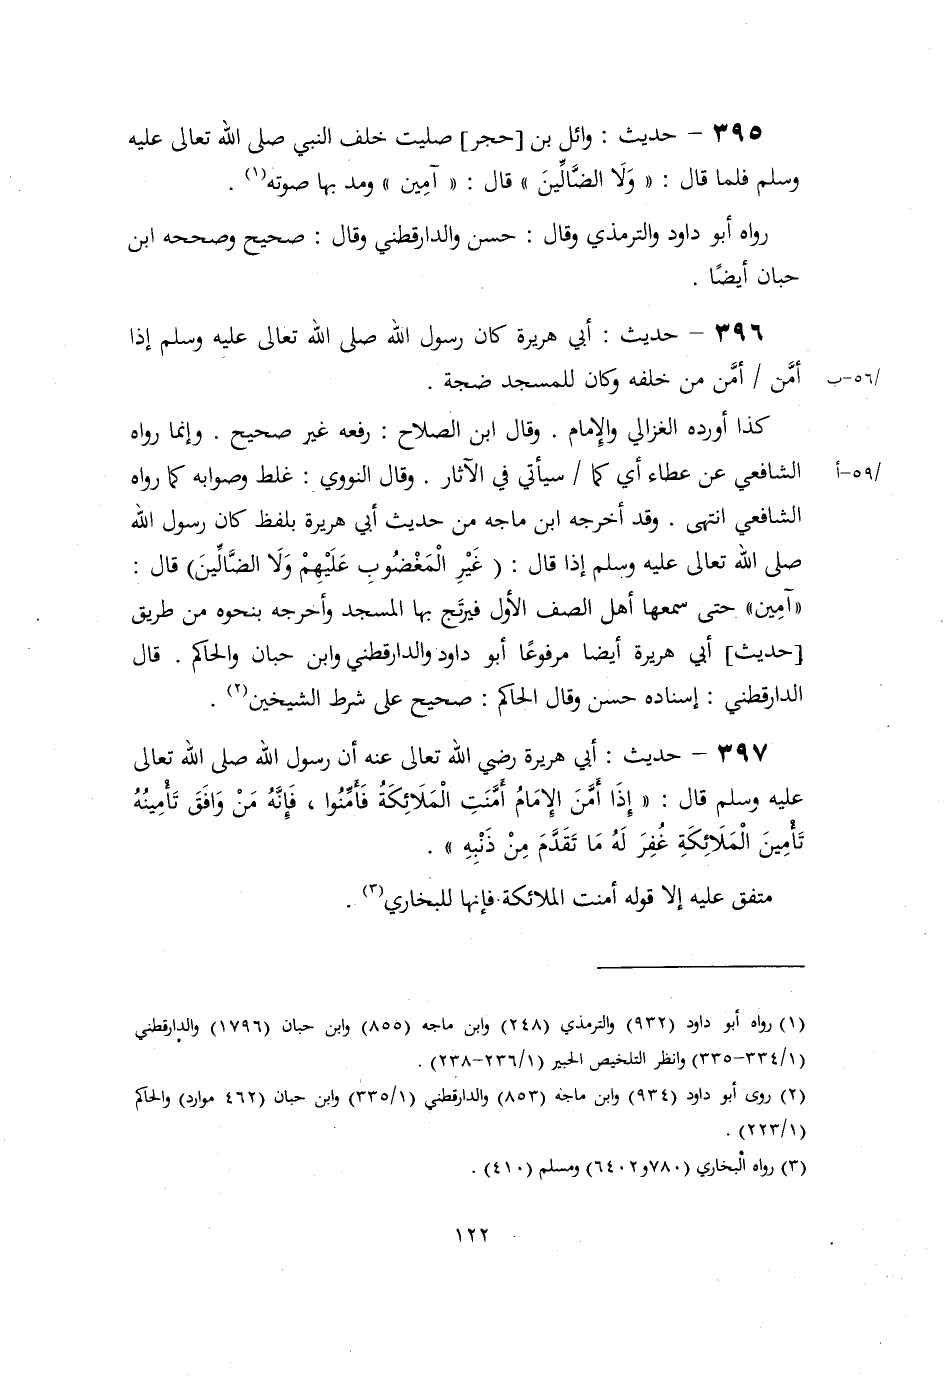 ٣٩٥ – حديث : وائل بن [حجر] صليت خلف النبي صلى الله تعالى عليه
وسلم فلما قال : « وَلَا الضَّالِّينَ » قال : « آمِين » ومد بها صوته(١) .
رواه أبو داود والترمذي وقال : حسن والدارقطني وقال : صحيح وصححه ابن
حبان أيضًا .
٣٩٦ – حديث : أبي هريرة كان رسول الله صلى الله تعالى عليه وسلم إذا
أمَّن / أمَّن من خلفه وكان للمسجد ضجة . /٥٦-ب
كذا أورده الغزالي والإمام . وقال ابن الصلاح : رفعه غير صحيح . وإنما رواه
الشافعي عن عطاء أي كما / سيأتي في الآثار . وقال النووي : غلط وصوابه كما رواه /٥٩-أ
الشافعي انتهى . وقد أخرجه ابن ماجه من حديث أبي هريرة بلفظ كان رسول الله
صلى الله تعالى عليه وسلم إذا قال : ( غَيْرِ الْمَغْضُوبِ عَلَيْهِمْ وَلَا الضَّالِّينَ) قال :
«آمِين» حتى سمعها أهل الصف الأول فيرتَج بها المسجد وأخرجه بنحوه من طريق
[حديث] أبي هريرة أيضا مرفوعًا أبو داود والدارقطني وابن حبان والحاكم . قال
الدارقطني : إسناده حسن وقال الحاكم : صحيح على شرط الشيخين(٢) .
٣٩٧ – حديث : أبي هريرة رضي الله تعالى عنه أن رسول الله صلى الله تعالى
عليه وسلم قال : « إِذَا أَمَّنَ الإِمَامُ أَمَّنَتِ الْمَلَائِكَةُ فَأَمِّنُوا ، فَإِنَّهُ مَنْ وَافَقَ تَأْمِينُهُ
تَأْمِينَ الْمَلَائِكَةِ غُفِرَ لَهُ مَا تَقَدَّمَ مِنْ ذَنْبِهِ » .
متفق عليه إلا قوله أمنت الملائكة فإنها للبخاري(٣) .
(١) رواه أبو داود (٩٣٢) والترمذي (٢٤٨) وابن ماجه (٨٥٥) وابن حبان (١٧٩٦) والدارقطني
(١/٣٣٤-٣٣٥) وانظر التلخيص الحبير (١/٢٣٦-٢٣٨) .
(٢) روى أبو داود (٩٣٤) وابن ماجه (٨٥٣) والدارقطني (١/٣٣٥) وابن حبان (٤٦٢ موارد) والحاكم
(١/٢٢٣) .
(٣) رواه البخاري (٧٨٠و٦٤٠٢) ومسلم (٤١٠) .
١٢٢